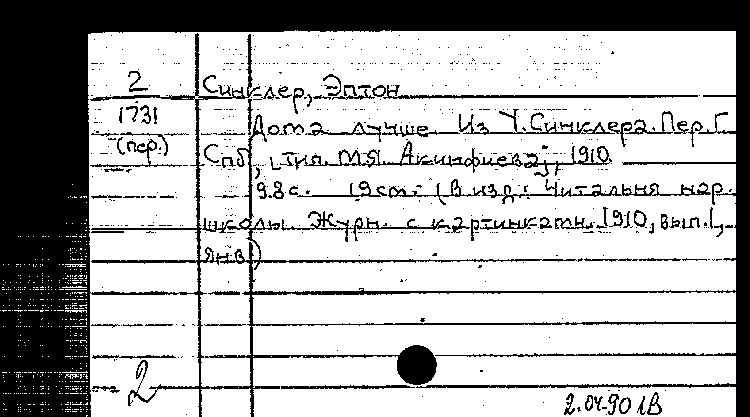 2 Синклер, Эптон
1731 Дома лучше. Из У. Синклера. Пер. Г.
(пер.) Спб, [тип. М.Я. Акинфиева], 1910
98с. 19см. (В изд.: Читальня нар.
школы. Журн. с картинками. 1910, вып.1,
янв)
2
2.04-90